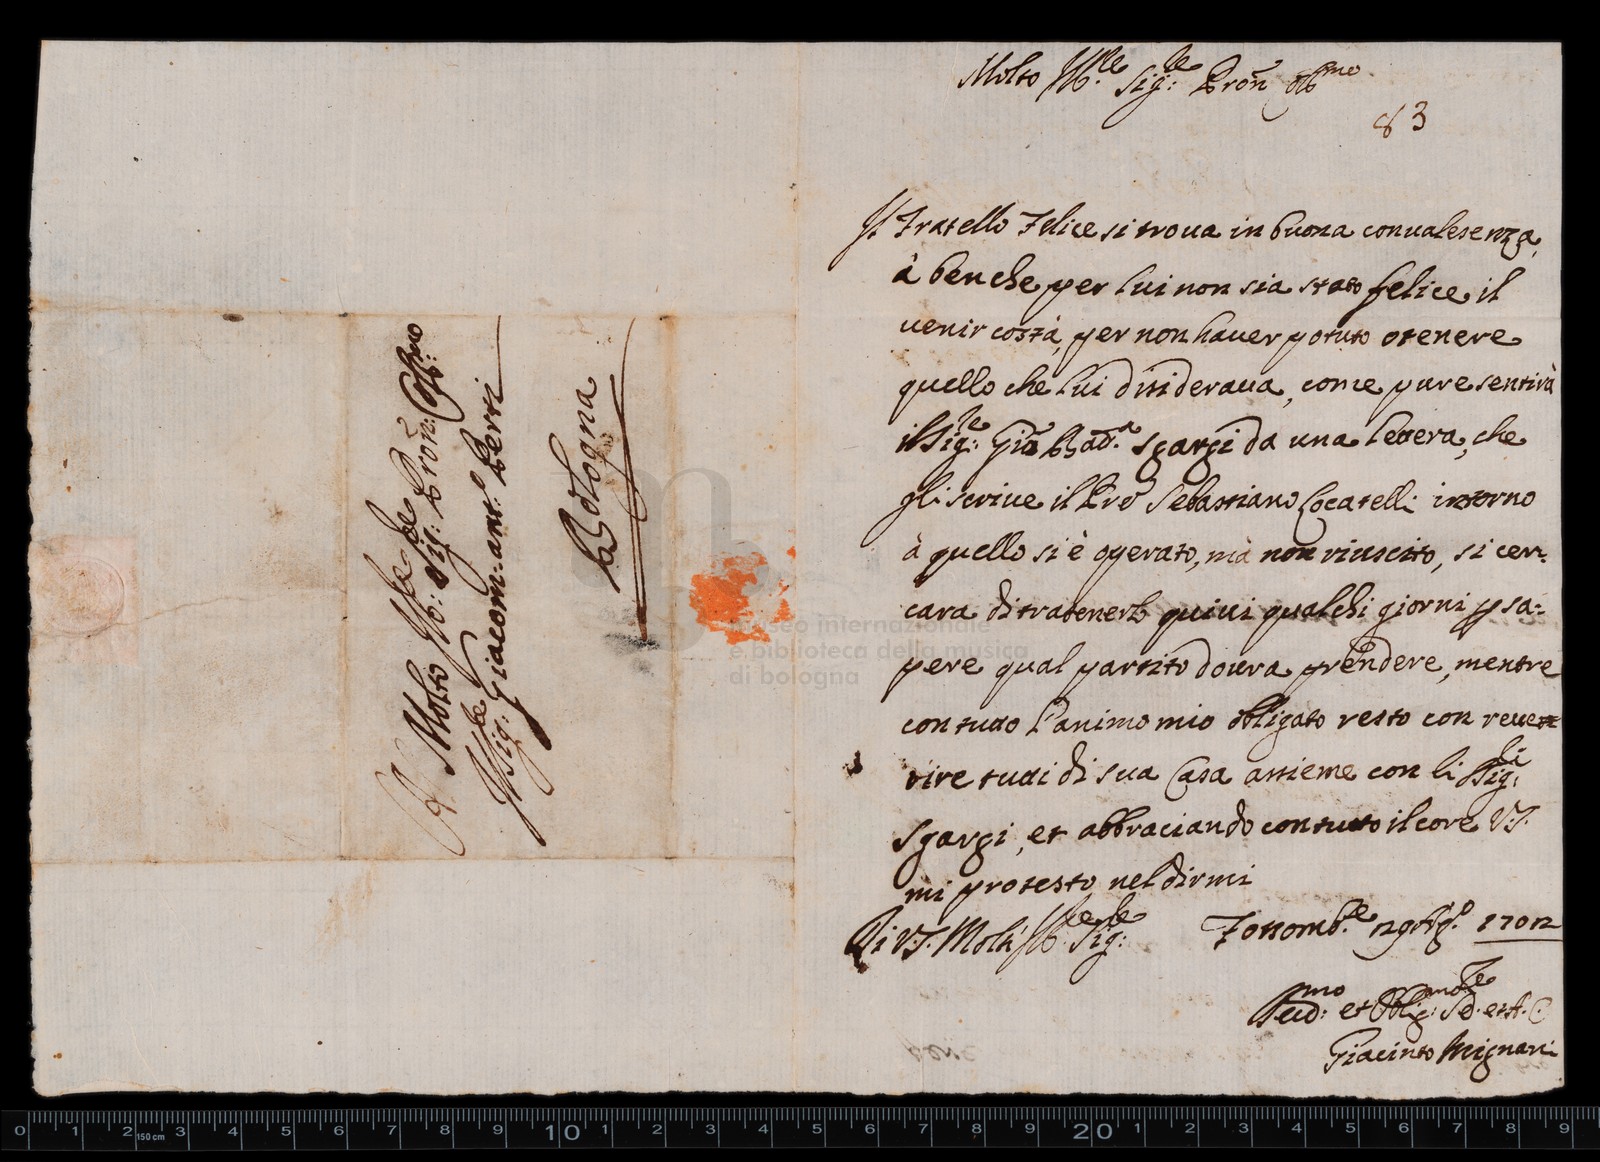 Molto Ill.re Sig.re Pron Oss.mo
83
Il Fratello Felice si troua in buona conualesenza,
à benche per lui non sia stato felice il
uenir costà, per non hauer potuto otenere
quello che lui disideraua, come pure sentirà
il Sig.re Gio Bad.a Sgargi da una letera, che
gli scriue il Pre Sebastiano Locatelli intorno
à quello si è operato, mà non riuscito, si cer-
cara di tratenerlo quiui qualchi giorni p sa-
pere qual partito doura prendere, mentre
con tutto l'animo mio obligato resto con reue
rire tutti di sua Casa assieme con li SSig.ri
Sgargi, et abbraciando con tutto il core V.S.
mi protesto nel dirmi
Di V.S. Molt' Ill.re Sig.re Fossomb.e 29 Ag.o 1702
et Oblig.mo
Giacinto Mignani
A Molto Ill.re Sig.re Pron: Coll.mo
Il Sig.re Giacom: Ant.o Perti
Bologna
museo internazionale
e biblioteca della musica
di bologna
0 1 2 150 cm 3 4 5 6 7 8 9 10 1 2 3 4 5 6 7 8 9 20 1 2 3 4 5 6 7 8 9